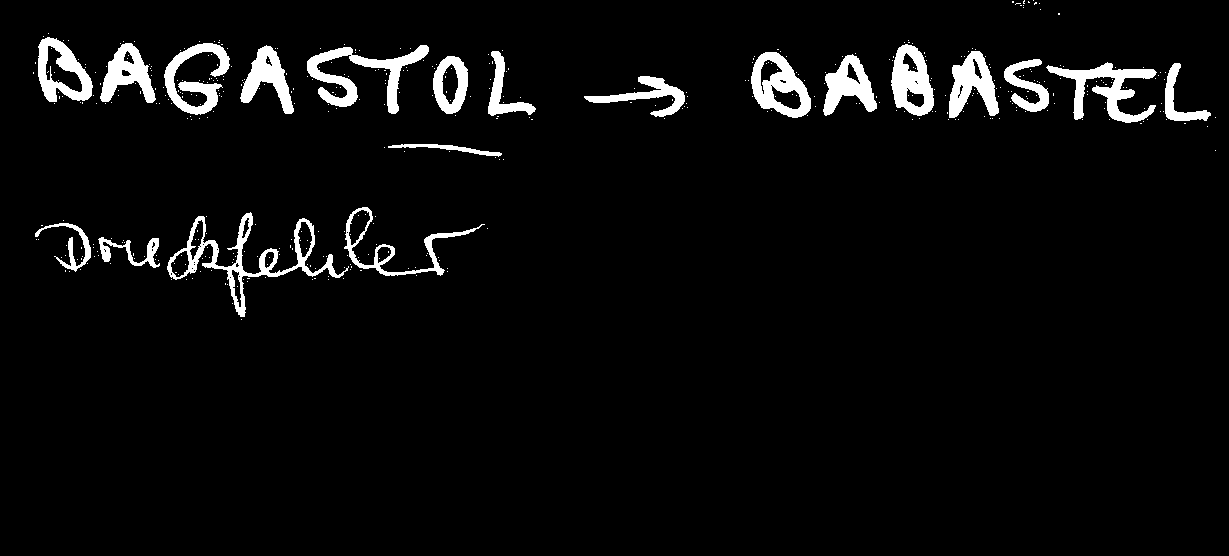 BAGASTOL → BABASTEL
Druckfehler